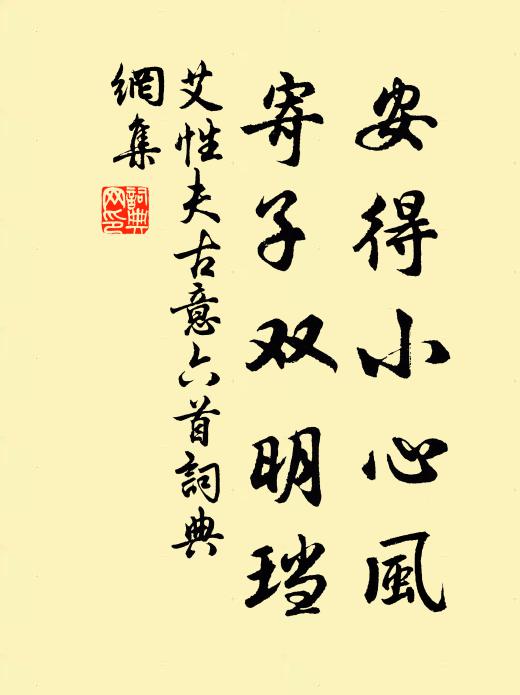 安得小心風
寄子双明珰
艾性夫古意六首詞典
網集
詞典
网印